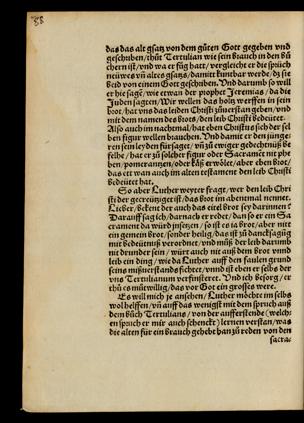 das das alt gsatz von dem gůten Gott gegeben vnd
geschriben / thůt Tertulian wie sein brauch in den bü
chern ist / vnd wa er fůg hatt / vergleicht er die sprüch
neüwes vñ altes gsatzs / damitt kuntbar werde / dz sie
beid von einem Gott geschriben. Vnd darumb so will
er hie sagē / wie etwan der prophet Jeremias / da die
Juden sagten / Wir wellen das holtz werffen in sein
brot / hat vns das leiden Christi zůuerstan geben / vnd
mit dem namen des brots / den leib Christi bedeütet.
Also auch im nachtmal / hat eben Christus sich der sel
ben figur wellen brauchen. Vnd damit er den jünge-
ren sein leyden für saget / vñ zů ewiger gedechtnüß be
felhe / hat er zů solcher figur oder Sacramēt nit öpffe
pomerantzen / oder käß erwölet / oder aber eben brot /
das ett wan auch im alten testament den leib Christi
bedeütet hat.
So aber Luther weyter fragt / wer den leib Chri
sti der gecreützigt ist / das brot im abentmal nennet.
Lieber / bekent der auch das eitel brot sey darinnen?
Darauff sag ich / darnach er redet / dan so er ein Sa
crament da würd jnsetzen / so ist es ia brot / aber nitt
ein gemein brot / sonder heilig / das ist zů dancksagūg
mit bedeütnüß verordnet / vnd můß der leib darumb
nit drunder sein / würt auch nit auß dem brot vnnd
leib ein ding / wie da Luther auff den faulen grund
seins mißuerstands fichtet / vnnd ist eben er selbs der
vns Tertulianum verfinsteret. Vnd ich besorg / er
thů es můtwillig / das vor Got ein grosses were.
Es will mich je ansehen / Luther möcht im selbs
wol helffen / vñ auff das wenigst mit dem spruch auß
dem bůch Tertulians / von der aufferstende (welch-
en spruch er mir auch schenckt) lernen verstan / was
die alten für ein brauch gehebt han zů reden von den
sacra-